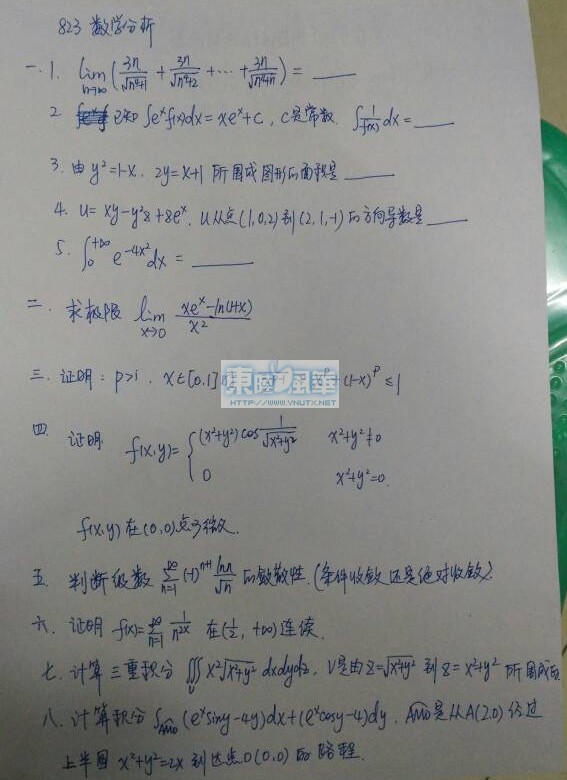 823 数学分析
一. 1. lim n→∞ (3n/√(n²+1) + 3n/√(n²+2) + ⋯ + 3n/√(n²+n)) = ____
2. 已知 ∫eˣf(x)dx = xeˣ + C, C是常数. ∫1/f(x) dx = ____
3. 由 y²=1-x, 2y=x+1 所围成图形的面积是 ____
4. u = xy-y²z+zeˣ, u从点(1,0,2)到(2,1,-1)的方向导数是 ____
5. ∫₀^{+∞} e^{-4x²}dx = ____
二. 求极限 lim x→0 (xeˣ-ln(1+x))/x²
三. 证明: p>1, x∈[0,1] xᵖ+(1-x)ᵖ ≤1
東方風華
HTTP://WWW.VNUTX.NET
四 证明 f(x,y)= { (x²+y²)cos 1/√(x²+y²) x²+y²≠0
0 x²+y²=0.
f(x,y)在(0,0)点可微.
五. 判断级数 ∑_{n=1}^{∞} (-1)^{n+1} ln n/√n 的敛散性. (条件收敛还是绝对收敛).
六. 证明 f(x)=∑_{n=1}^{∞} 1/n^{2x} 在(1/2, +∞)连续.
七. 计算三重积分 ∭_V x²√(x²+y²) dxdydz, V是由z=√(x²+y²)到z=x²+y²所围成
八. 计算积分 ∫_{AMO} (eˣsiny-4y)dx+(eˣcosy-4)dy. AMO是从A(2,0)经过
上半圆 x²+y²=2x 到达点O(0,0)的路程.